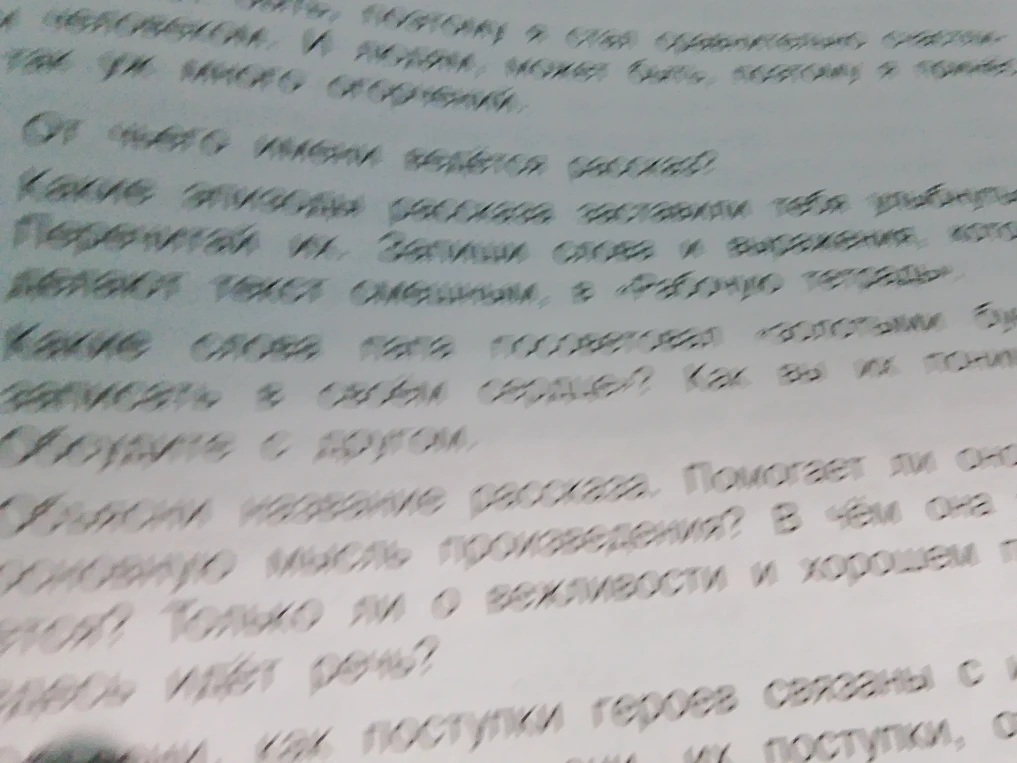 быть, поэтому я стал сравнительно
человеком. И людям, может быть, поэтому я
так уж много огорчений.
От чьего имени ведётся рассказ?
Какие эпизоды рассказа заставили тебя
Перечитай их. Запиши слова и выражения,
делают текст смешным, в «Рабочую тетрадь».
Какие слова папа посоветовал «золотыми
записать в своём сердце»? Как вы их
Обсудите с другом.
Объясни название рассказа. Помогает ли оно
основную мысль произведения? В чём она
Только ли о вежливости и хорошем
здесь идёт речь?
как поступки героев связаны с
их поступки,